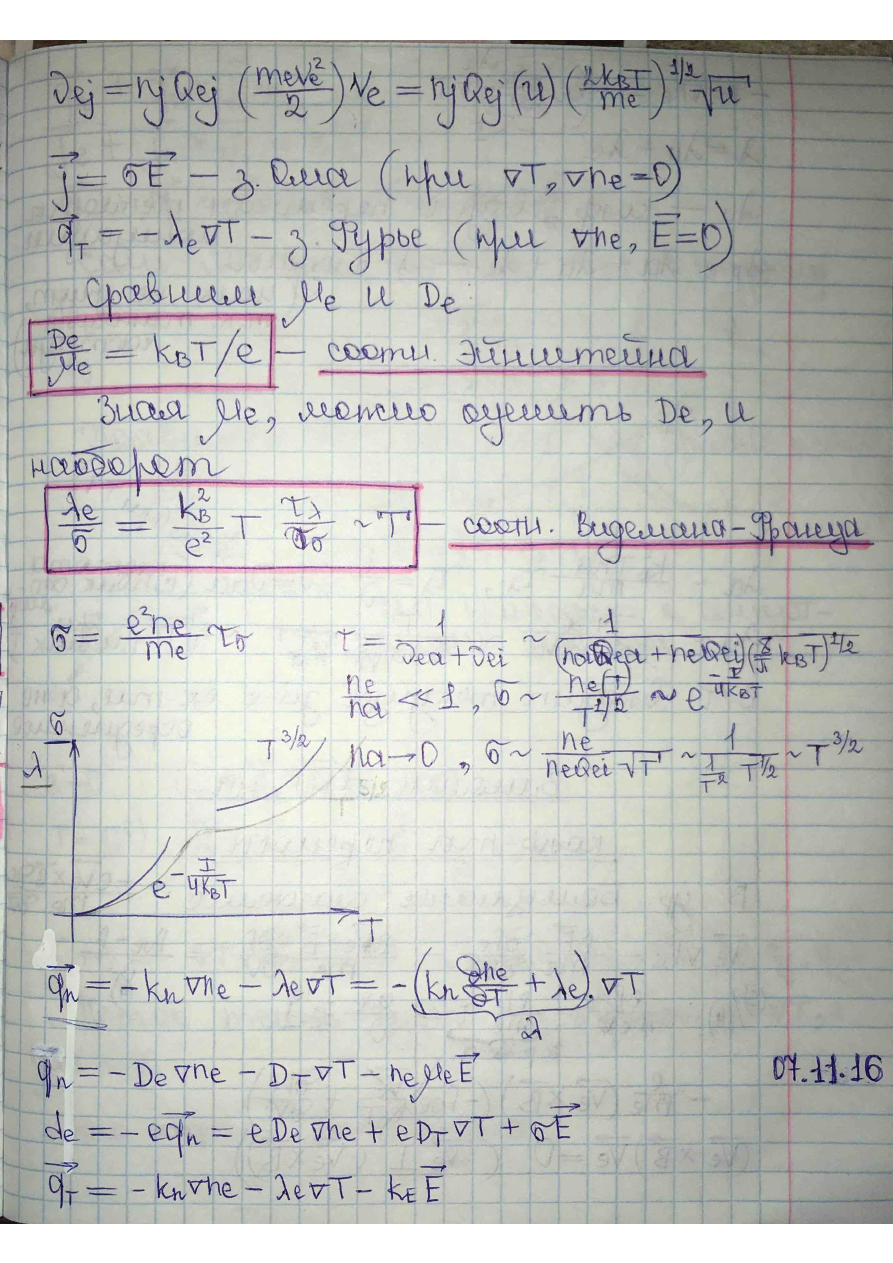 νej = nj Qej (meve²/2) Ve = nj Qej (u) (2kBT/me)^1/2 √u
j⃗ = σE⃗ – з. Ома (при ∇T, ∇ne = 0)
q⃗T = -λe∇T – з. Фурье (при ∇ne, E⃗ = 0)
Сравним μe и De
De/μe = kBT/e – соотн. Эйнштейна
Зная μe, можно оценить De, и
наоборот
λe/σ = kB²/e² T τλ/τσ ~ T – соотн. Видемана-Франца
σ = e²ne/me τσ τ = 1/(νea + νei) ~ 1/((naQea + neQei)(8/π kBT)^1/2)
ne/na ≪ 1, σ ~ ne(T)/T^1/2 ~ e^(-I/4kBT)
na → 0, σ ~ ne/(neQei √T) ~ 1/(1/T² T^1/2) ~ T^3/2
σ
λ
T^3/2
T^3/2
e^(-I/4kBT)
T
q⃗n = -kn∇ne - λe∇T = -(kn ∂ne/∂T + λe)·∇T
λ
q⃗n = -De∇ne - DT∇T - neμeE⃗
07.11.16
de = -eq⃗n = eDe∇ne + eDT∇T + σE⃗
q⃗T = -kn∇ne - λe∇T - kEE⃗